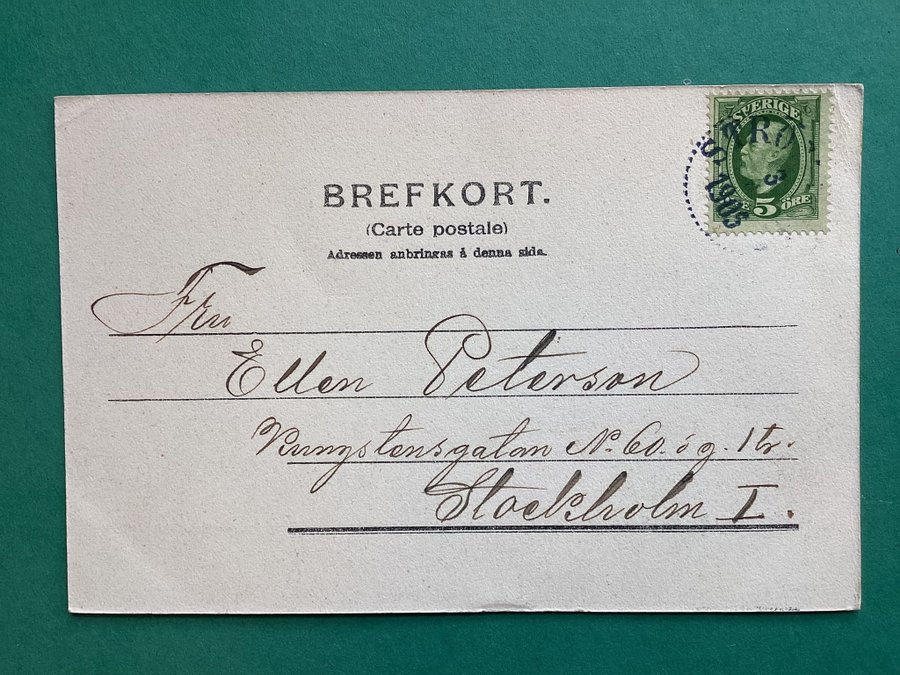 SVERIGE
5 ÖRE
1903
BREFKORT.
(Carte postale)
Adressen anbringas å denna sida.
Fru
Ellen Peterson
Kungstensgatan No. 60. ö g. 1 tr.
Stockholm I.